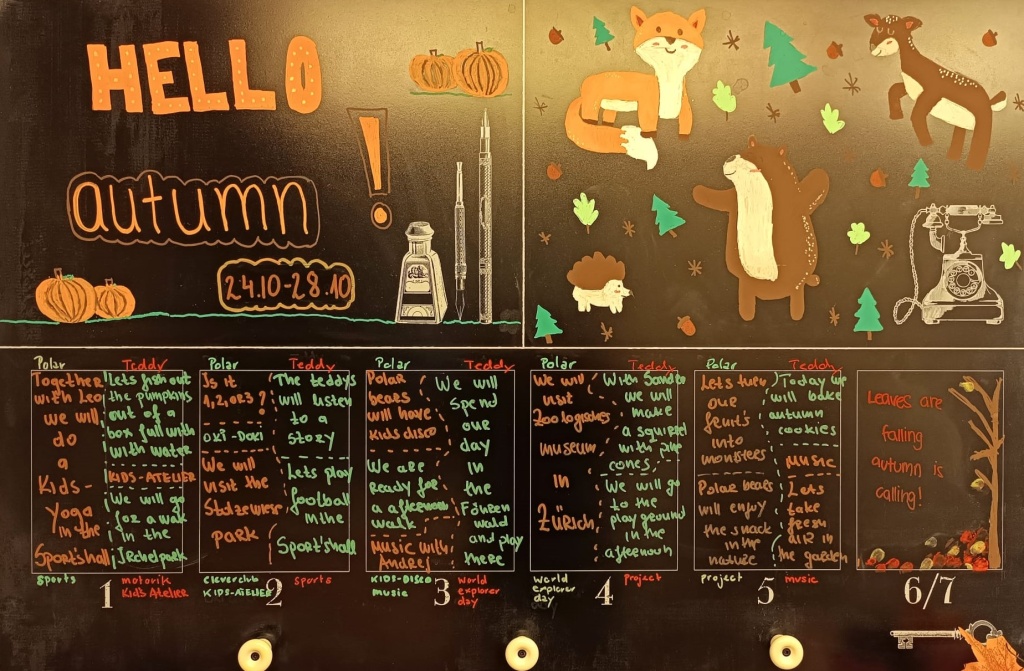 HELLO
autumn
!
24.10-28.10
Polar
Together
with Leo
we will
do
a
Kids-
Yoga
in the
Sport'shall
Teddy
Lets fish out
the pumpkins
out of a
box full with
with water
KIDS-ATELIER
We will go
for a walk
in the
Irchelpark
sports
motorik
Kids Atelier
1
Polar
Is it
1,2, or 3 ?
OXI-DOXI
We will
visit the
park
Teddy
The teddys
will listen
to a
story
Lets play
football
in the
Sport'shall
cleverclub
KIDS-ATELIER
sports
2
Polar
Polar
bears
will have
kids disco
We are
ready for
a afternoon
walk
Music with
Andrej
Teddy
We will
spend
our
day
in
the
wald
and play
there
KIDS-DISCO
music
world
explorer
day
3
Polar
We will
visit
Zoologisches
museum
in
Zürich
Teddy
With Sandro
we will
make
a squirrel
with pine
cones.
We will go
to the
playground
in the
afternoon
world
explorer
day
project
4
Polar
Lets turn
our
fruit's
into
monsters
Polar bears
will enjoy
the snack
in the
nature
Teddy
Today we
will bake
autumn
cookies
music
Lets
take
fresh
air in
the garden
project
music
5
Leaves are
falling
autumn is
calling!
6/7